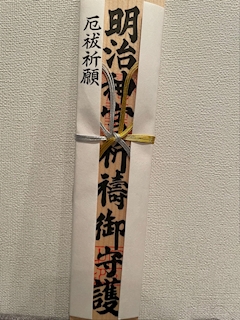 厄祓祈願
明治神宮祈禱御守護